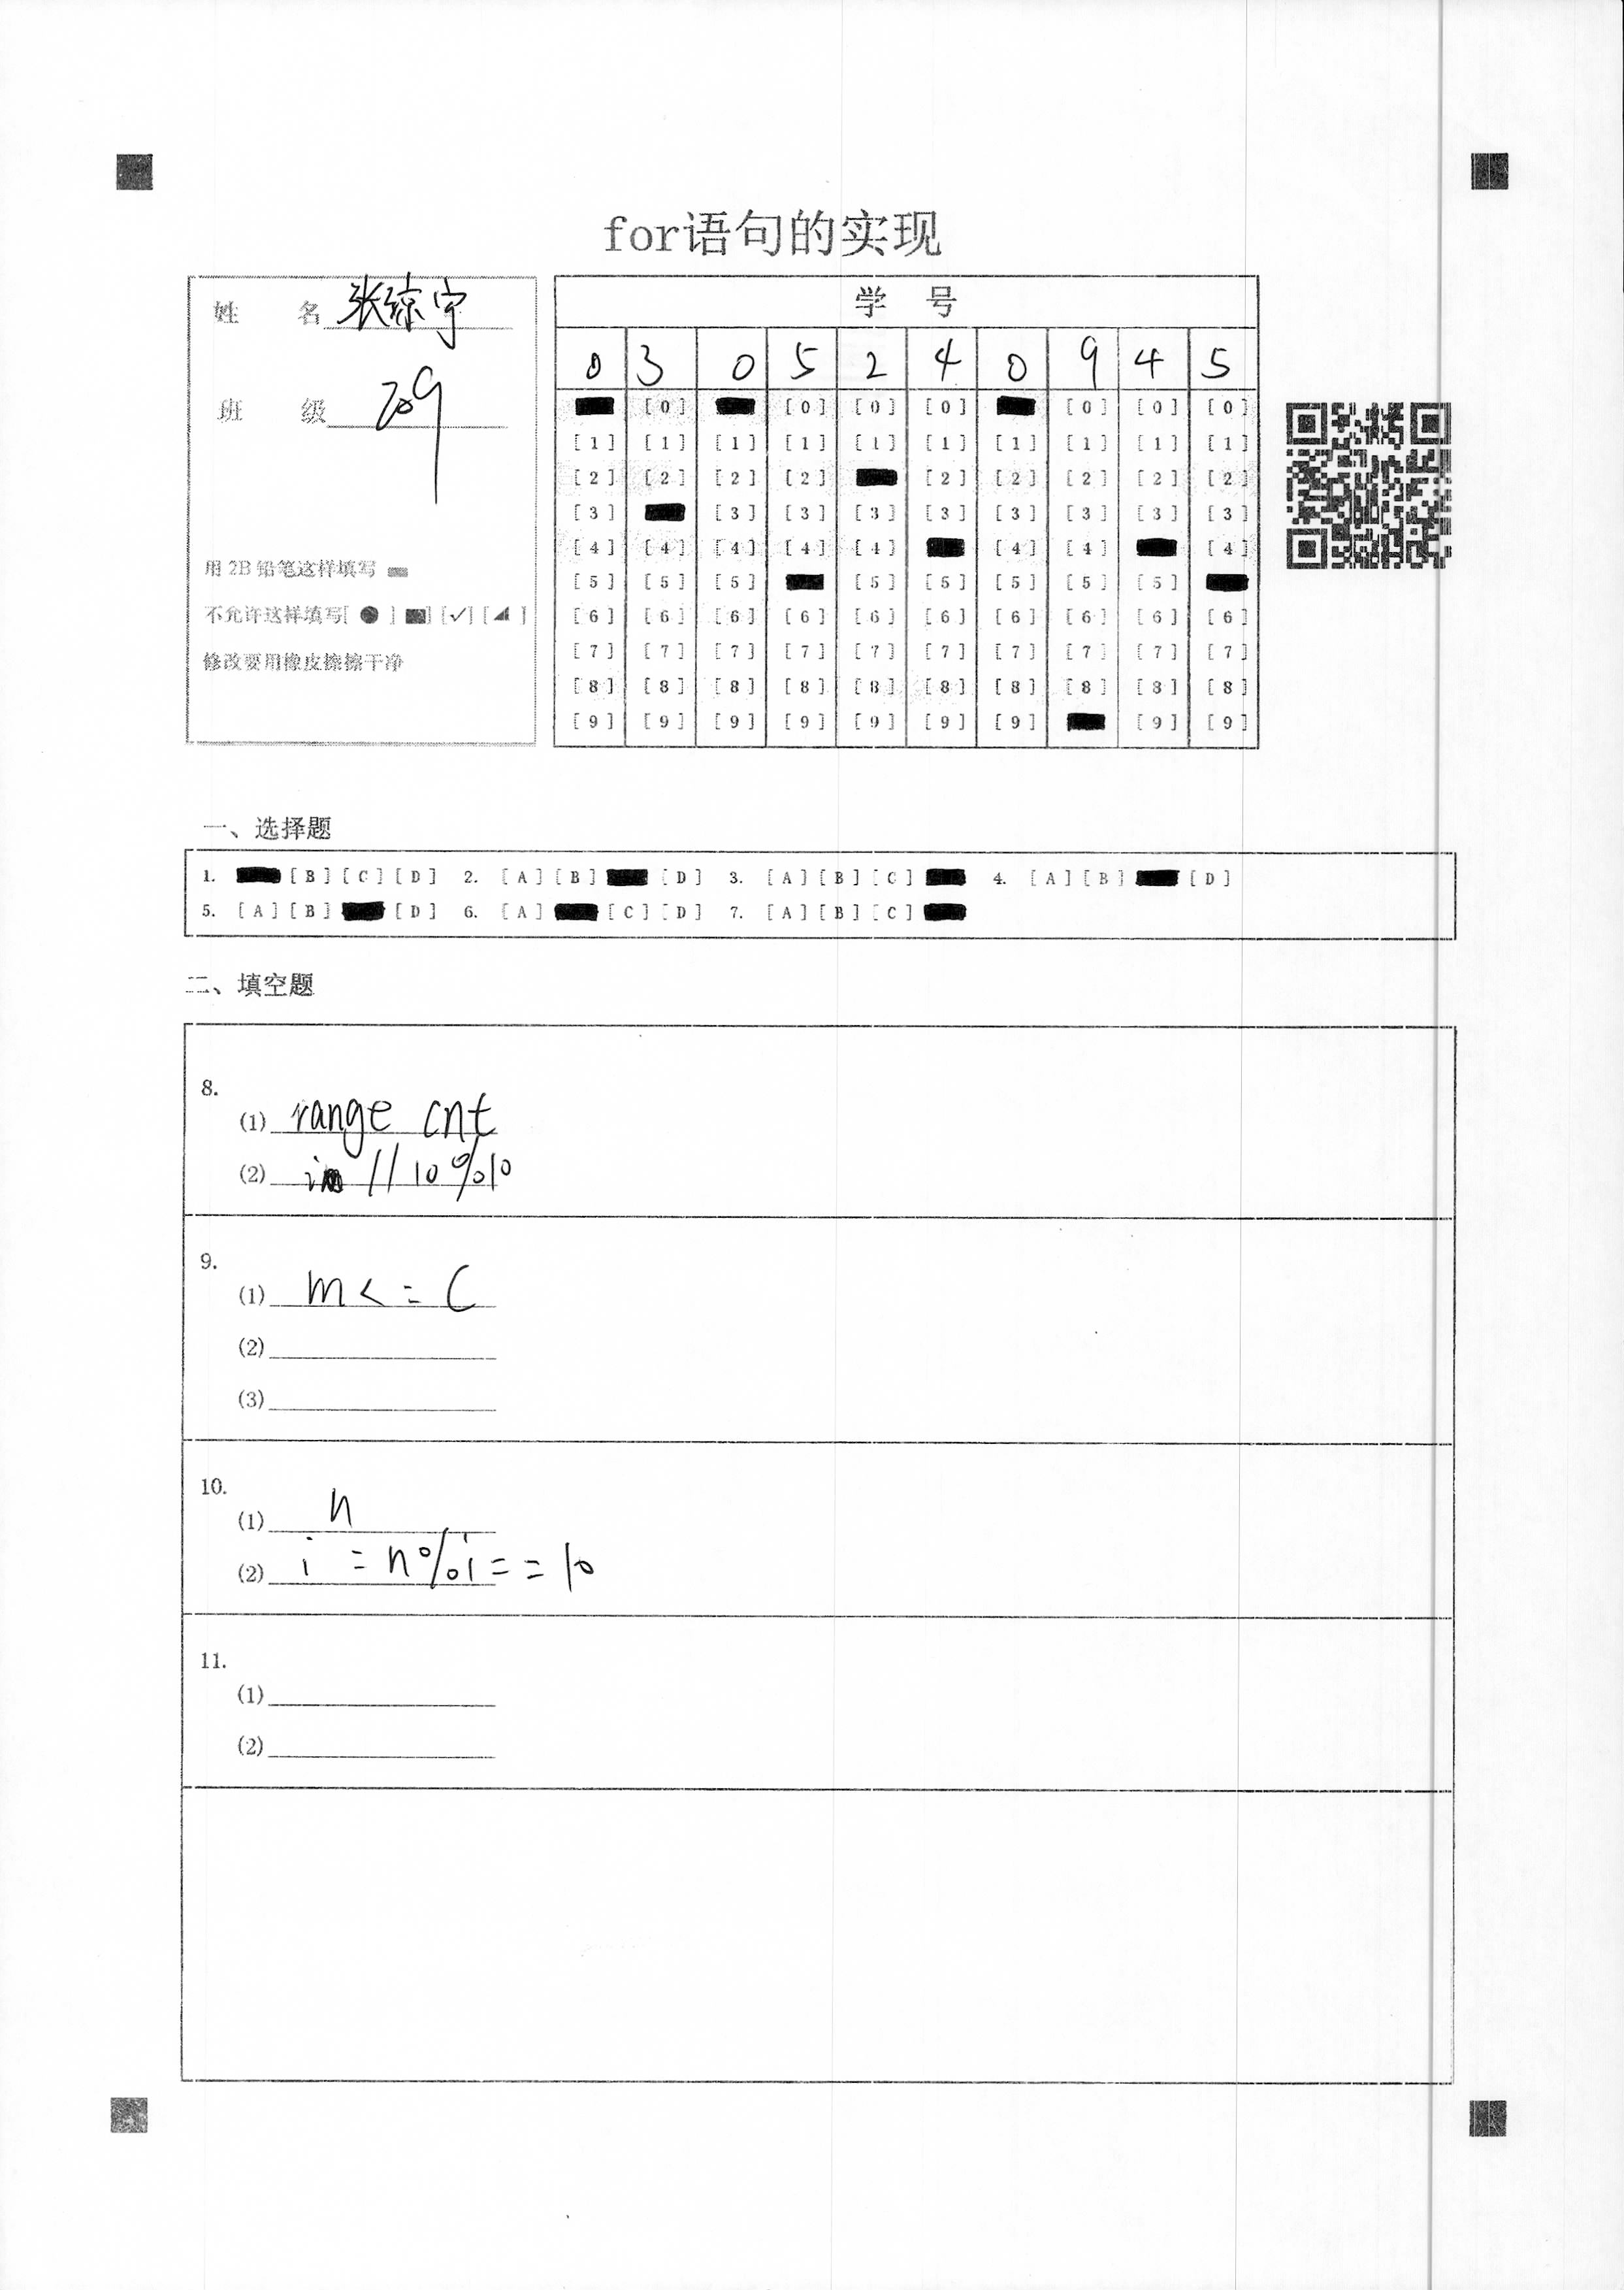 for语句的实现
姓 名 张琼宇
班 级 209
用 2B 铅笔这样填写
不允许这样填写[ ● ] ■] [✓] [◢ ]
修改要用橡皮擦擦干净
学 号
0 3 0 5 2 4 0 9 4 5
[0] [0] [0] [0] [0] [0]
[1] [1] [1] [1] [1] [1] [1] [1] [1] [1]
[2] [2] [2] [2] [2] [2] [2] [2] [2]
[3] [3] [3] [3] [3] [3] [3] [3] [3]
[4] [4] [4] [4] [4] [4] [4] [4]
[5] [5] [5] [5] [5] [5] [5] [5]
[6] [6] [6] [6] [6] [6] [6] [6] [6] [6]
[7] [7] [7] [7] [7] [7] [7] [7] [7] [7]
[8] [8] [8] [8] [8] [8] [8] [8] [8] [8]
[9] [9] [9] [9] [9] [9] [9] [9] [9]
一、选择题
1. [B] [C] [D] 2. [A] [B] [D] 3. [A] [B] [C] 4. [A] [B] [D]
5. [A] [B] [D] 6. [A] [C] [D] 7. [A] [B] [C]
二、填空题
8.
(1) range cnt
(2) i // 10 % 10
9.
(1) m < = C
(2)
(3)
10.
(1) n
(2) i = n % i = = 10
11.
(1)
(2)